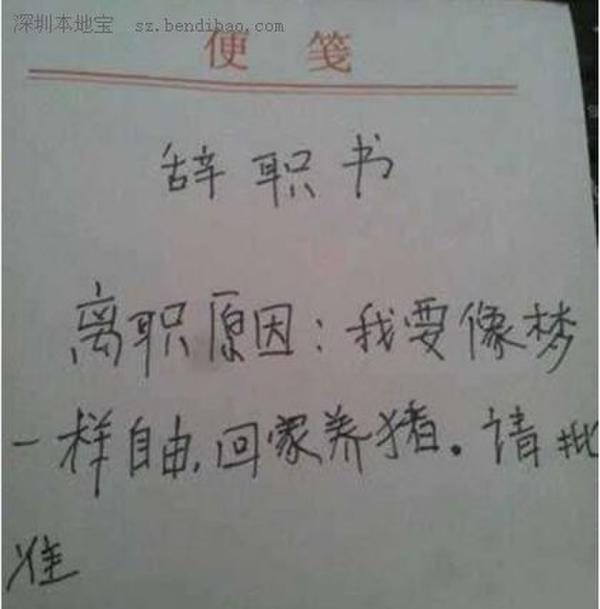 深圳本地宝 sz.bendibao.com
便 笺
辞职书
离职原因:我要像梦
一样自由,回家养猪。请批
准